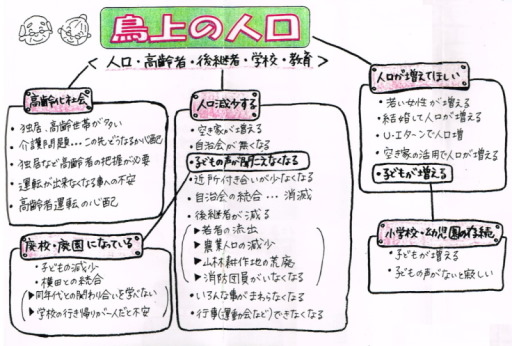 鳥上の人口
＜人口・高齢者・後継者・学校・教育＞
高齢化社会
・独居、高齢世帯が多い
・介護問題…この先どうなるか心配
・独居など高齢者の把握が必要
・運転が出来なくなる事への不安
・高齢者運転の心配
廃校・廃園になっている
・子どもの減少
・横田との統合
▶同年代との関わり合いを学べない
▶学校の行き帰りが一人だと不安
人口減少する
・空き家が増える
・自治会が無くなる
・子どもの声が聞こえなくなる
・近所付き合いが少なくなる
・自治会の統合…消滅
・後継者が減る
▶若者の流出
▶農業人口の減少
▶山林耕作地の荒廃
▶消防団員がいなくなる
・いろんな事がまわらなくなる
・行事(運動会など)できなくなる
人口が増えてほしい
・若い女性が増える
・結婚して人口が増える
・U-イターンで人口増
・空き家の活用で人口が増える
・子どもが増える
小学校・幼児園の存続
・子どもが増える
・子どもの声がないと寂しい